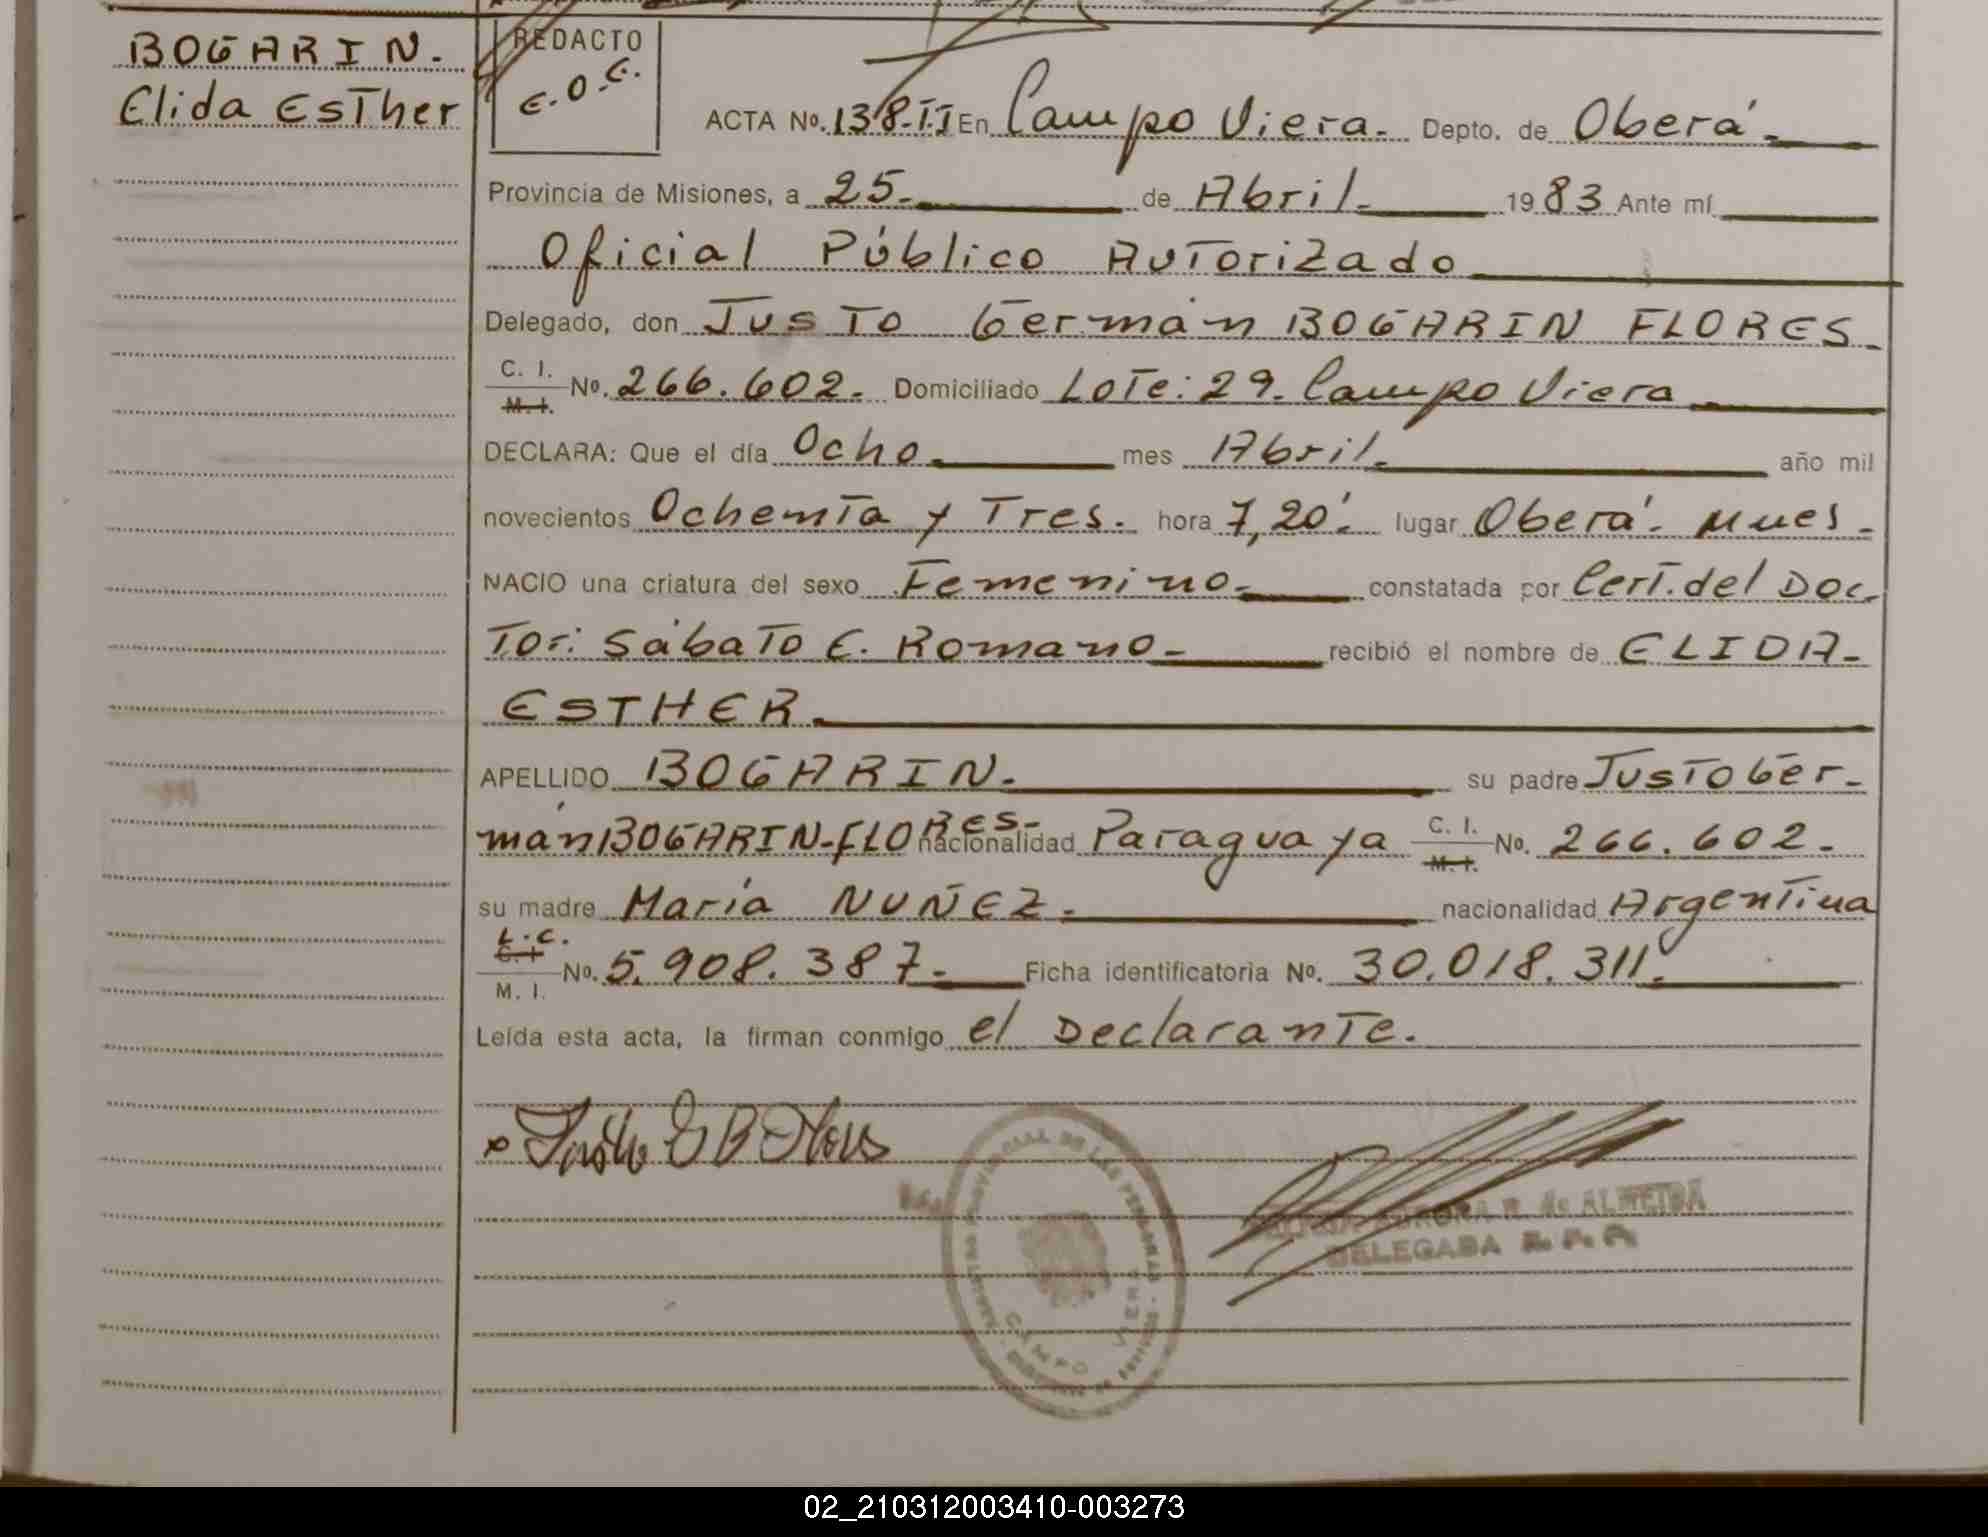 BOGARIN.
Elida EsTher
REDACTO
E.O.E.
ACTA Nº. 138-II En Campo Viera. Depto. de Oberá.
Provincia de Misiones, a 25. de Abril. 1983 Ante mí
Oficial Público AuTorizado
Delegado, don JusTo Germán BOGARIN FLORES.
C. I. M. I. Nº. 266.602. Domiciliado LoTe: 29. Campo Viera
DECLARA: Que el día Ocho. mes Abril. año mil
novecientos OchenTa y Tres. hora 7,20'. lugar Oberá. Mnes.
NACIO una criatura del sexo Femenino. constatada por CerT. del Doc
Tor: SábaTo E. Romano. recibió el nombre de ELIDA-
ESTHER.
APELLIDO BOGARIN. su padre JusTo Ger-
mán BOGARIN-FLORes- nacionalidad Paraguaya C. I. M. I. Nº. 266.602.
su madre María NUÑEZ. nacionalidad ArgenTina
L.C. C. I. M. I. Nº. 5.908.387. Ficha identificatoria Nº. 30.018.311.
Leída esta acta, la firman conmigo el DeclaranTe.
CAMPO VIERA
AURORA R. de ALMEIDA
DELEGADA
02_210312003410-003273